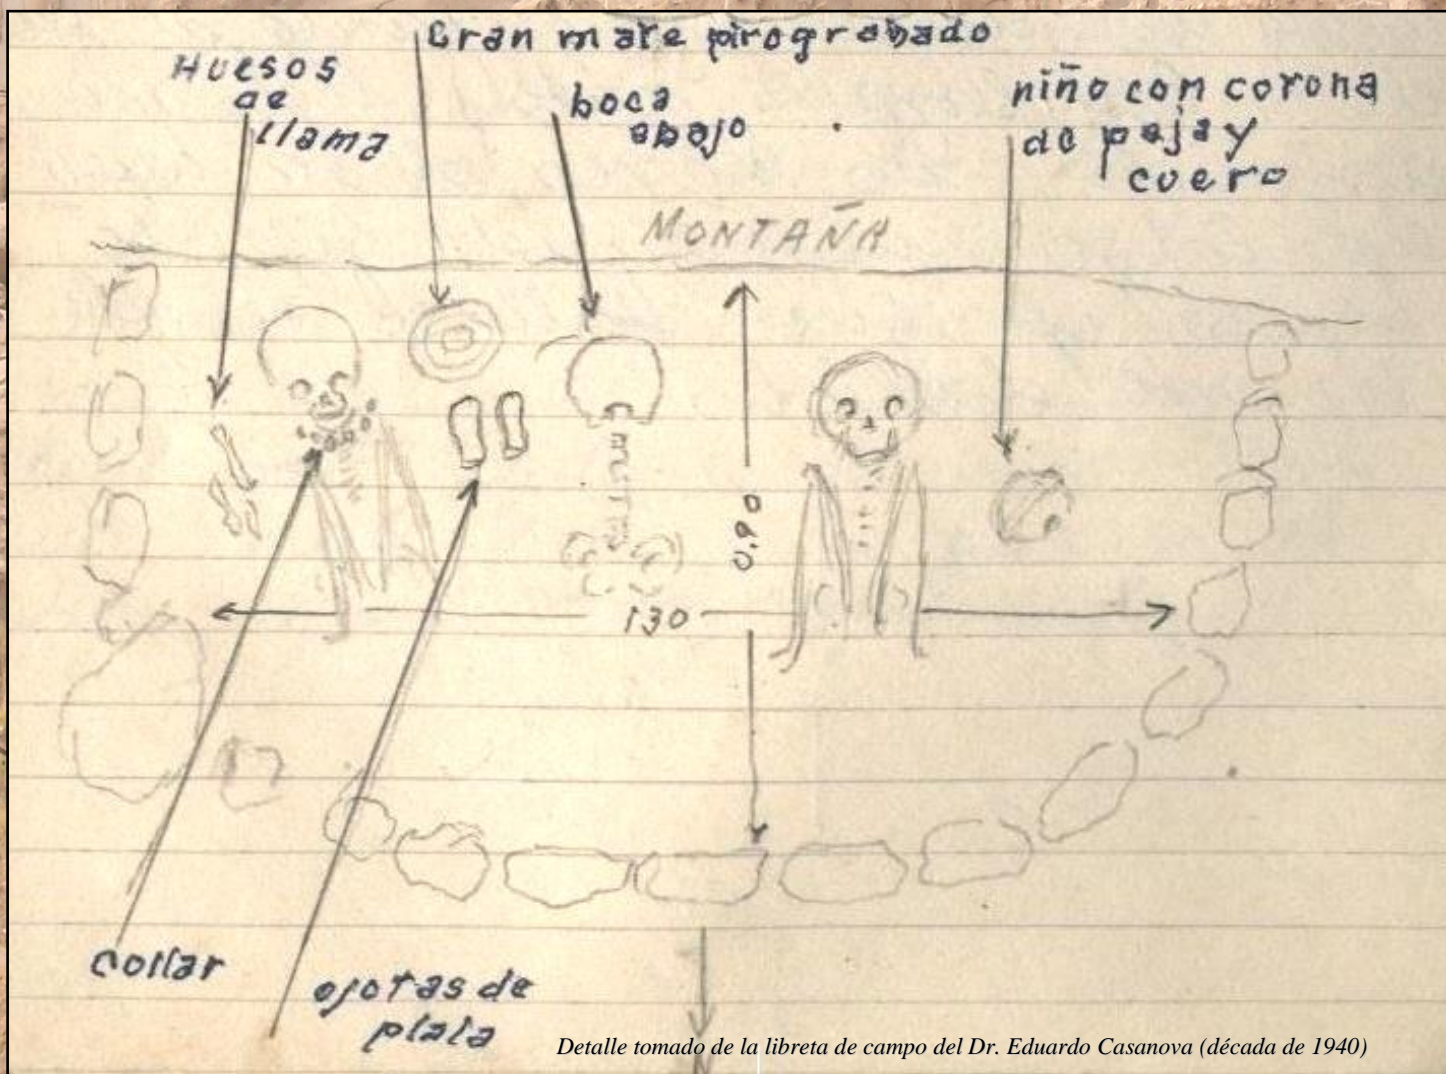 Gran mate pirograbado
Huesos
de
llama
boca
abajo
niño con corona
de paja y
cuero
MONTAÑA
0,90
130
collar
ojotas de
plata
N
Detalle tomado de la libreta de campo del Dr. Eduardo Casanova (década de 1940)